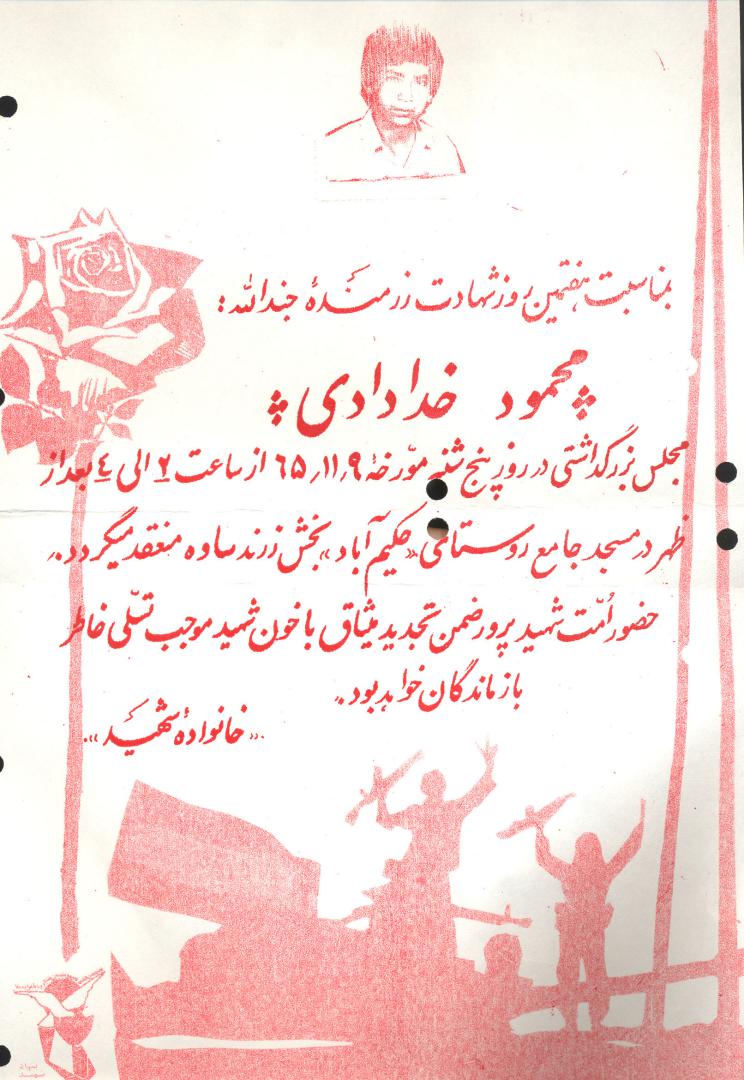 بمناسبت هفتمین روز شهادت رزمندهٔ جندالله:
محمود خدادادی
مجلس بزرگداشتی در روز پنج شنبه مورّخهٔ ۶۵،۱۱،۹ از ساعت ۲ الی ٤ بعد از
ظهر در مسجد جامع روستای «حکیم آباد» بخش زرند ساوه منعقد میگردد.
حضور اُمّت شهید پرور ضمن تجدید میثاق با خون شهید موجب تسلّی خاطر
بازماندگان خواهد بود.
«خانوادهٔ شهید»